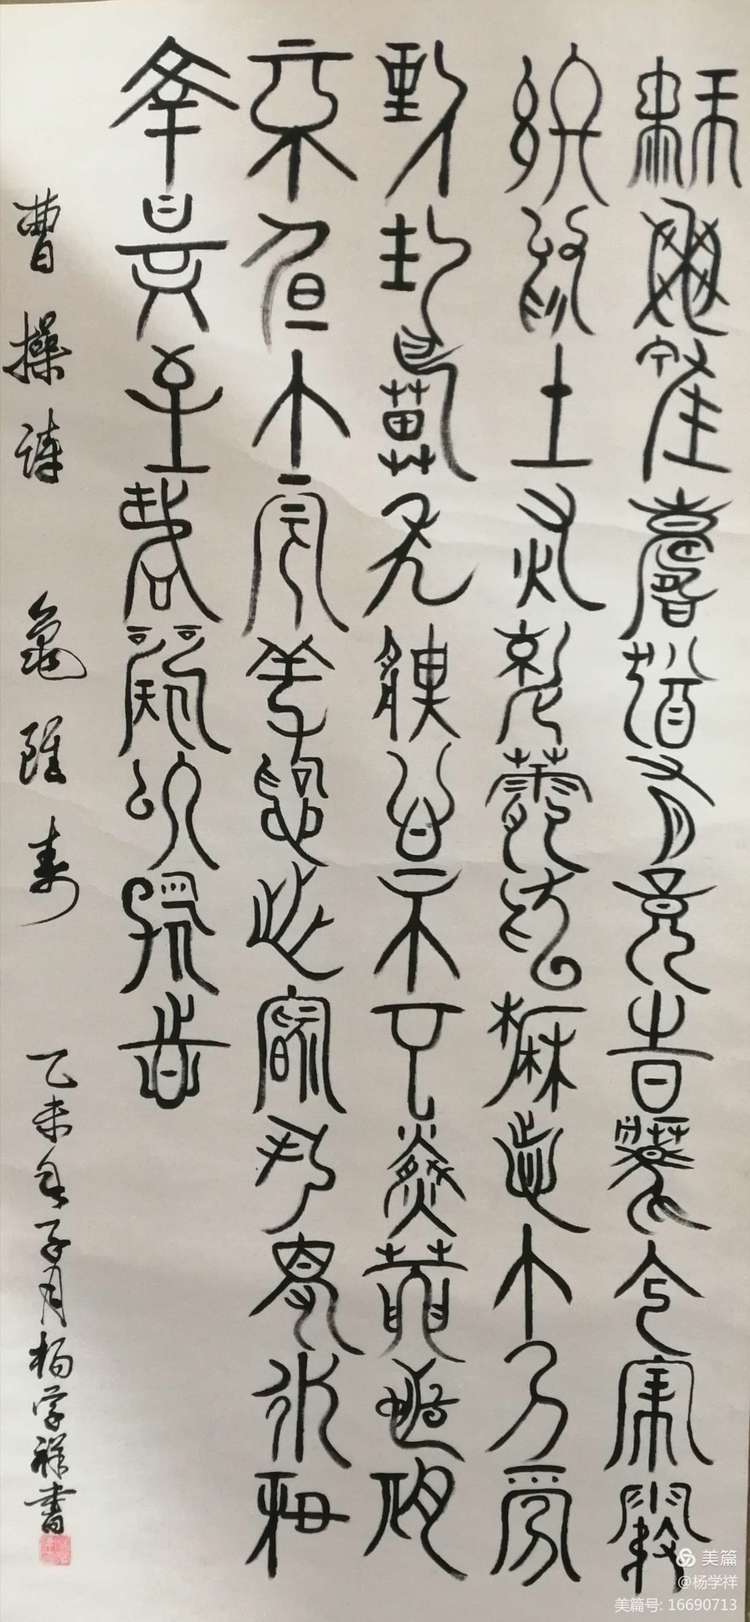 神龜雖壽猶有竟時騰蛇乘霧
終為土灰老驥伏櫪志在千里
烈士暮年壯心不已盈縮之期
不但在天養怡之福可得永年
幸甚至哉歌以詠志
曹操詩 龜雖壽 乙未年子月楊學祥書
美篇
@杨学祥
美篇号: 16690713